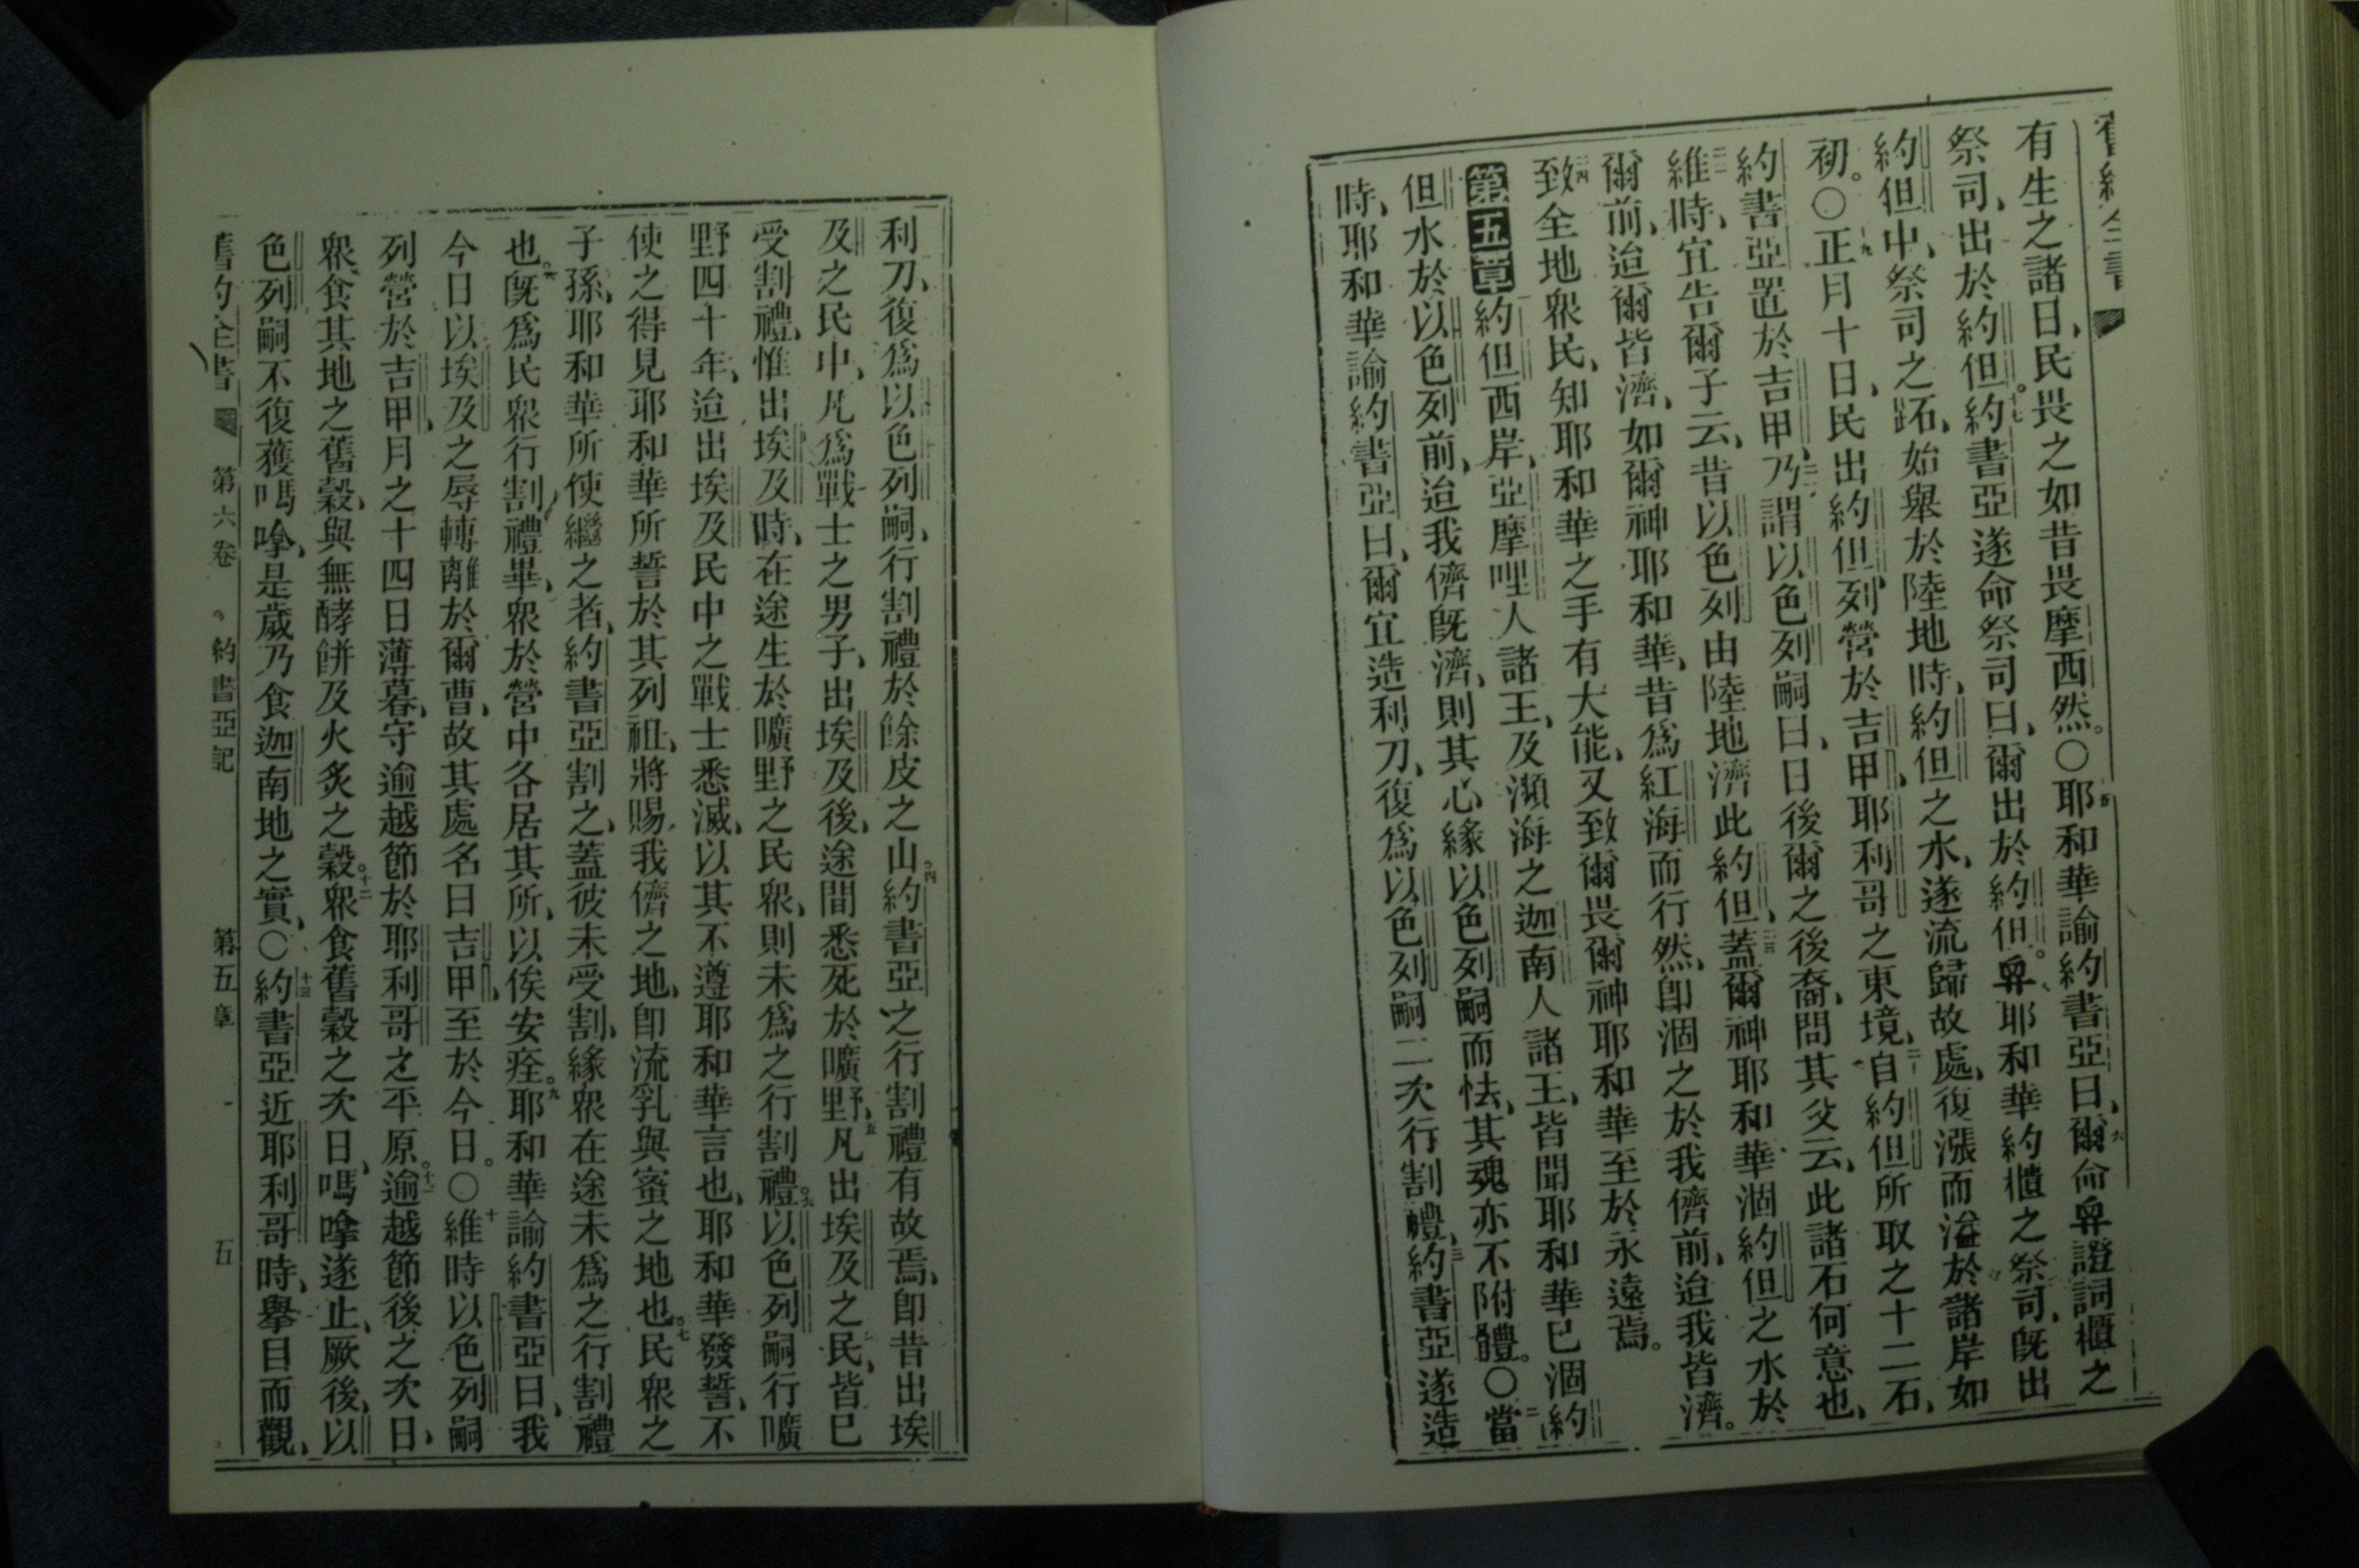 舊約全書
有生之諸日、民畏之如昔畏摩西然。○十五耶和華諭約書亞曰、十六爾命舁證詞櫃之
祭司、出於約但。十七約書亞遂命祭司曰、爾出於約但。十八舁耶和華約櫃之祭司、既出
約但中、祭司之跖、始舉於陸地時、約但之水、遂流歸故處、復漲而溢於諸岸如
初。○十九正月十日、民出約但、列營於吉甲、耶利哥之東境、二十自約但所取之十二石、
約書亞置於吉甲、二一乃謂以色列嗣曰、日後爾之後裔、問其父云、此諸石何意也、
二二維時、宜告爾子云、昔以色列由陸地濟此約但、二三蓋爾神耶和華涸約但之水於
爾前、迨爾皆濟、如爾神耶和華、昔爲紅海而行然、卽涸之於我儕前、迨我皆濟。
二四致全地衆民、知耶和華之手有大能、又致爾畏爾神耶和華至於永遠焉。
第五章 一約但西岸、亞摩哩人諸王、及瀕海之迦南人諸王、皆聞耶和華已涸約
但水於以色列前、迨我儕既濟、則其心緣以色列嗣而怯、其魂亦不附體。○二當
時、耶和華諭約書亞曰、爾宜造利刀、復爲以色列嗣二次行割禮、三約書亞遂造
利刀、復爲以色列嗣、行割禮於餘皮之山。四約書亞之行割禮有故焉、卽昔出埃
及之民中、凡爲戰士之男子、出埃及後、途間悉死於曠野、五凡出埃及之民、皆已
受割禮、惟出埃及時、在途生於曠野之民衆、則未爲之行割禮。六以色列嗣行曠
野四十年、迨出埃及民中之戰士悉滅、以其不遵耶和華言也、耶和華發誓、不
使之得見耶和華所誓於其列祖、將賜我儕之地、卽流乳與蜜之地也。七民衆之
子孫、耶和華所使繼之者、約書亞割之、蓋彼未受割、緣衆在途未爲之行割禮
也。八既爲民衆行割禮畢、衆於營中各居其所、以俟安痊。九耶和華諭約書亞曰、我
今日以埃及之辱轉離於爾曹、故其處名曰吉甲、至於今日。○十維時以色列嗣
列營於吉甲、月之十四日薄暮、守逾越節於耶利哥之平原。十一逾越節後之次日、
衆食其地之舊穀、與無酵餠及火炙之穀。十二衆食舊穀之次日、嗎嗱遂止、厥後、以
色列嗣不復獲嗎嗱、是歲乃食迦南地之實、○十三約書亞近耶利哥時、舉目而觀、
舊約全書 第六卷 約書亞記 第五章 五